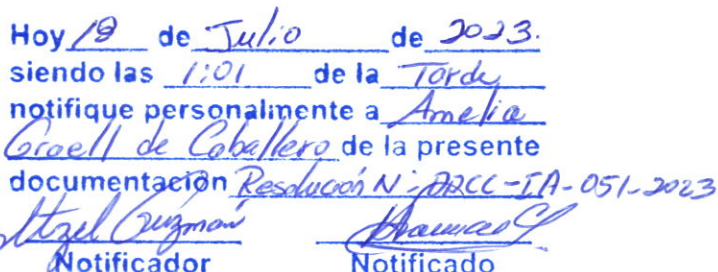 Hoy 18 de Julio de 2023.
siendo las 1:01 de la Tarde
notifique personalmente a Amelia
Graell de Caballero de la presente
documentación Resolución N. DRCC-IA-051-2023
Itzel Guzmán
Notificador Notificado